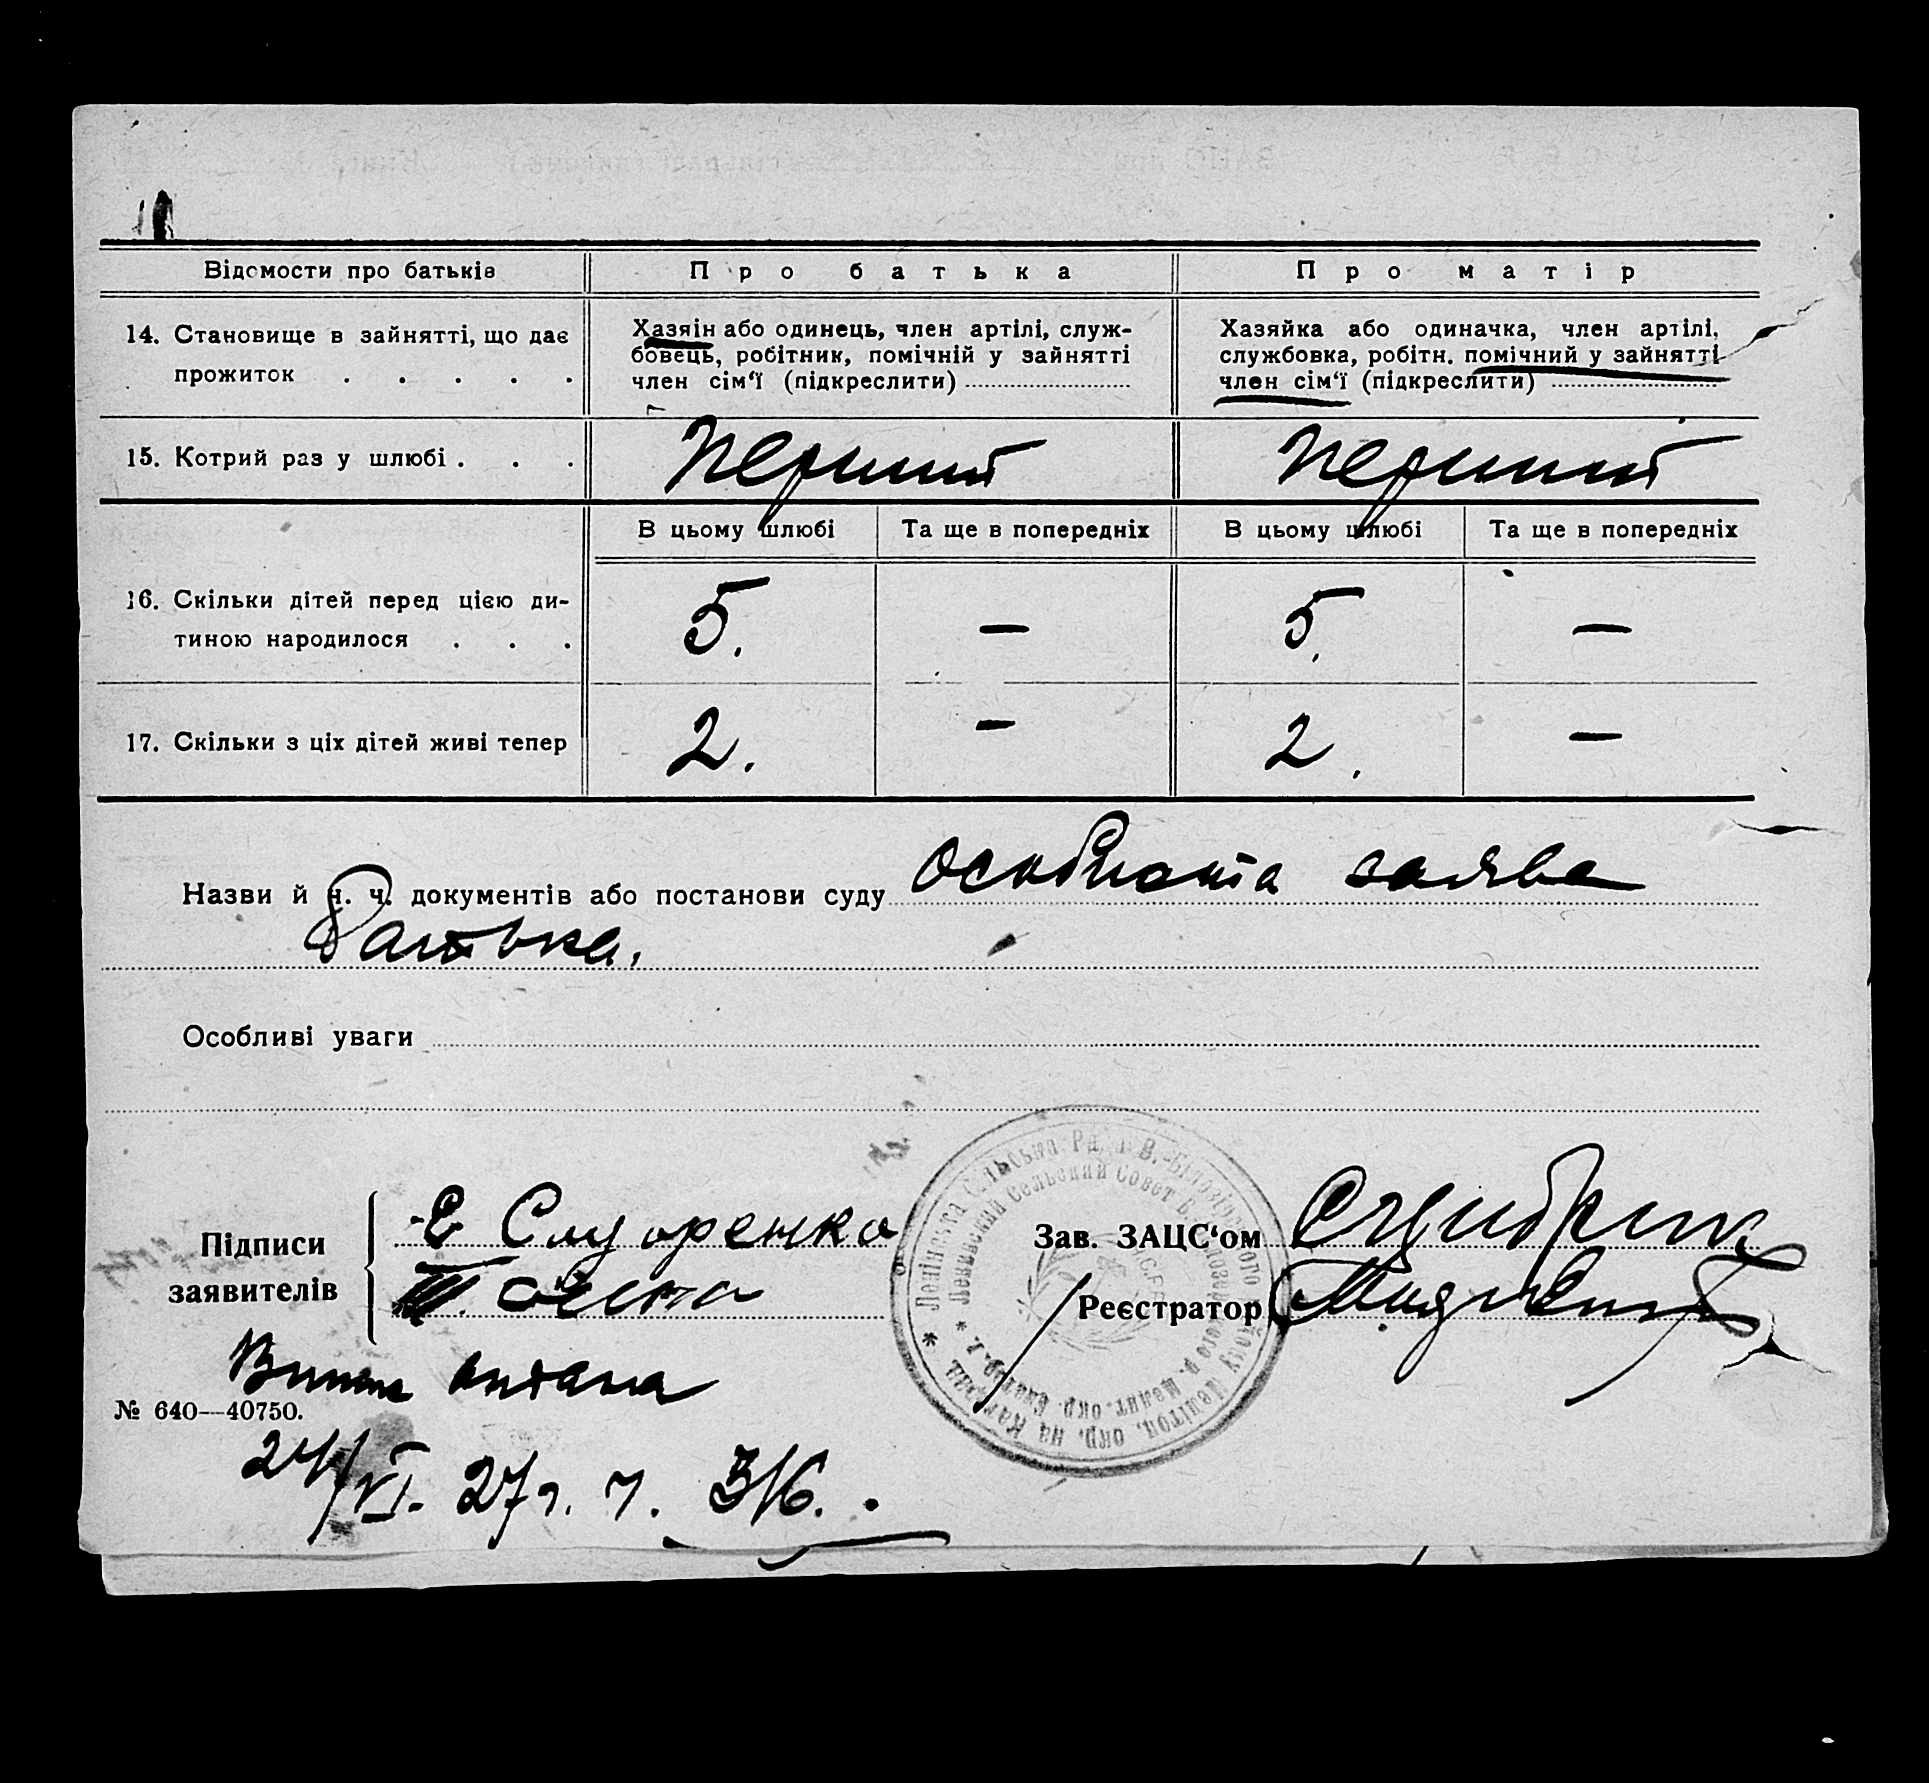 Відомости про батьків Про батька Про матір
14. Становище в зайнятті, що дає
прожиток . . . . .
Хазяін або одинець, член артілі, служ-
бовець, робітник, помічній у зайнятті
член сім‘ї (підкреслити)
Хазяйка або одиначка, член артілі,
службовка, робітн. помічний у зайнятті
член сім‘ї (підкреслити)
15. Котрий раз у шлюбі . . . Перший Перший
В цьому шлюбі Та ще в попередніх В цьому шлюбі Та ще в попередніх
16. Скільки дітей перед цією ди-
тиною народилося . . . 5. — 5. —
17. Скільки з ціх дітей живі тепер 2. — 2. —
Назви й н. ч. документів або постанови суду особиста заява
батька.
Особливі уваги
Підписи
заявителів
Е
Зав. ЗАЦС‘ом
Реєстратор
видана
№ 640—40750.
24/VI. 27 г. ч. 316.